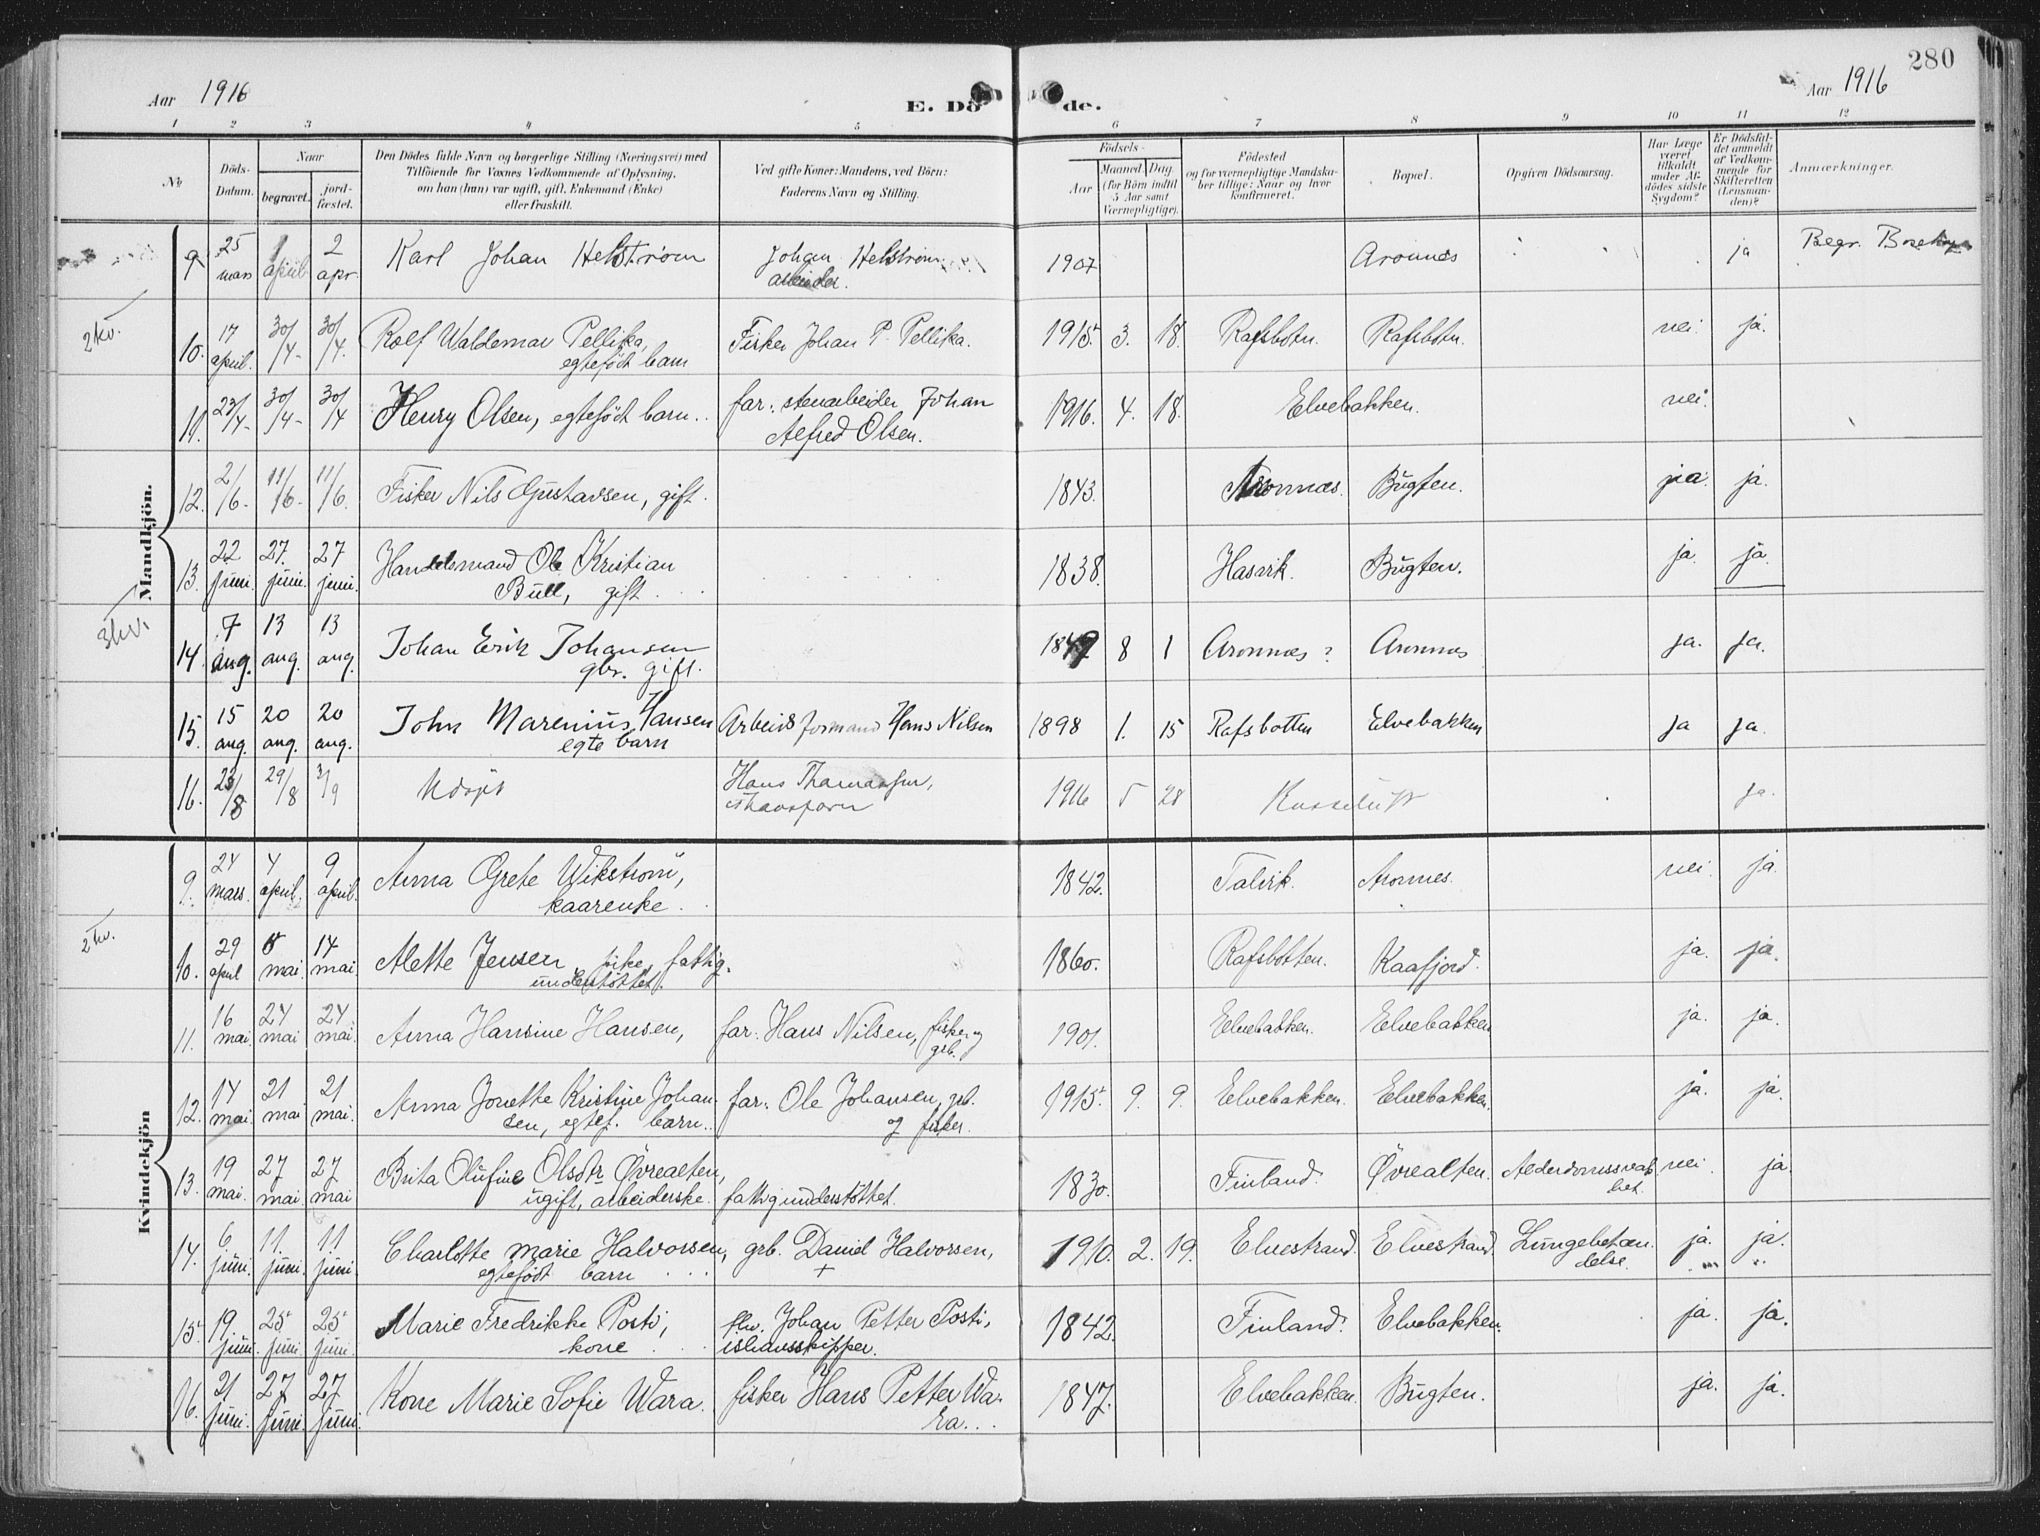 280
Aar 1916
E. Dö de.
Aar 1916
1 2 3 4 5 6 7 8 9 10 11 12
No
Döds-Datum.
Naar
begravet.
jord-fæstet.
Den Dödes fulde Navn og borgerlige Stilling (Næringsvei) med
Tilföiende for Voxnes Vedkommende af Oplysning,
om han (hun) var ugift, gift, Enkemand (Enke)
eller fraskilt.
Ved gifte Koner: Mandens, ved Börn:
Faderens Navn og Stilling.
Födsels-
Aar
Maaned. Dag.
(for Börn indtil
5 Aar samt
Værnepligtige).
Födested
og for værnepligtige Mandska-
ber tillige: Naar og hvor
konfirmeret.
Bopæl.
Opgiven Dödsaarsag.
Har Læge
været
tilkaldt
under Af-
dödes sidste
Sygdom?
Er Dödsfal-
det anmeldt
af Vedkom-
mende for
Skifteretten
(Lensman-
den)?
Anmærkninger.
Mandkjön.
9 25 mars 1 april 2 apr. Karl Johan Helstrøm Johan Helstrøm 1907 Aronnes ja Begr.
arbeider.
2 kv.
10. 17 april. 30/4- 30/4. Rolf Waldemar Pellika, Fisker Johan P. Pellika. 1915 3. 18. Rafsbotn. Rafsbotn. nei. ja.
egtefödt barn
11. 23/4- 30/4- 30/4 Henry Olsen, egtefödt barn. far: stenarbeider Johan 1916. 4. 18. Elvebakken. nei.
Alfred Olsen.
12. 2/6- 11/6- 11/6. Fisker Nils Gustavsen, gift. 1843. Aronnæs. Bugten. ja. ja.
13. 22 juni. 27 juni. 27 juni. Handelsmand Ole Kristian 1838. Hasvik. Bugten. ja. ja.
Bull, gift.
3 kv.
14. 7 aug. 13 aug. 13 aug. Johan Erik Johansen 1849 8 1 Aronnæs? Aronnæs ja. ja.
gbr. gift.
15. 15 aug. 20 aug. 20 aug. John Marenius Hansen Arbeidsformand Hans Nilsen 1898 1. 15 Rafsbotten Elvebakken ja ja.
egte barn
16. 23/8 29/8 3/9 Udöpt Hans Thomassen, 1916 5 28 ja.
Kvindekjön
9. 24 mars. 4 april. 9 april. Anna Grete Wikstrøm, 1842. Talvik. Aronnes. nei. ja.
kaarenke.
2 kv.
10. 29 april mai. 14 mai. Alette Jensen pike, fattig- 1860. Rafsbotten. Kaafjord. ja. ja.
understöttet.
11. 16 mai. 24 mai 24 mai. Anna Hansine Hansen, far: Hans Nilsen, fisker og 1901. Elvebakken. Elvebakken ja. ja.
grb.
12. 14 mai. 21 mai 21 mai. Anna Jonette Kristine Johan- far: Ole Johansen, grb. 1915. 9. 9. Elvebakken. Elvebakken. ja. ja.
sen, egtef. barn. og fisker.
13. 19 mai. 27 mai. 27 mai Brita Olufine Olsdtr Øvrealten, 1830. Finland. Øvrealten. Alderdomssvak- nei. ja.
ugift, arbeiderske. fattigunderstöttet. het.
14. 6 juni. 11. juni. 11 juni. Charlotte Marie Halvorsen, grb. Daniel Halvorsen, 1910. 2. 19. Elvestrand. Elvestrand. Lungebetæn- ja. ja.
egtefödt barn + delse.
15. 19 juni. 25 juni. 25 juni. Marie Fredrikke Posti, fhv. Johan Petter Posti, 1842. Finland. Elvebakken. ja. ja.
kone ishavsskipper.
16. 21 juni. 27 juni. 27 juni. Kone Marie Sofie Wara. fisker Hans Petter Wa- 1847. Elvebakken. Bugten. ja. ja.
ra.